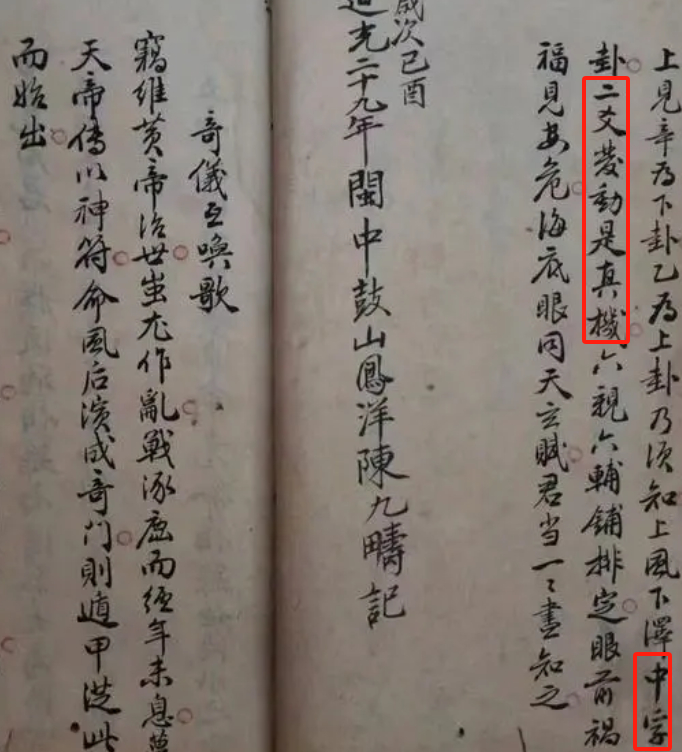 上見辛為下卦乙為上卦乃須知上風下澤中孚
卦二爻發動是真機六親六輔鋪排定眼前禍
福見安危海底眼同天玄賦君當一々盡知之
歲次己酉
道光二十九年閩中鼓山鳳洋陳九疇記
奇儀互喚歌
竊維黃帝治世蚩尤作亂戰涿鹿而經年未息蒙
天帝傳以神符命風后演成奇門則遁甲從此
而始出